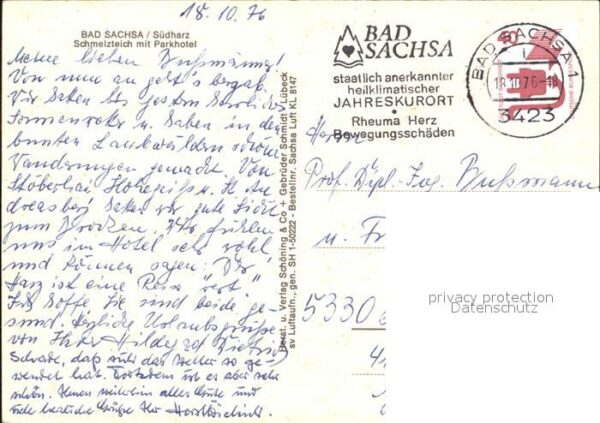 18.10.76
BAD SACHSA / Südharz
Schmelzteich mit Parkhotel
Meine lieben Bußmänner!
Von nun an geht's bergab.
Wir haben bis gestern herrliches
Sonnenwetter u. haben in den
bunten Laubwäldern schöne
Wanderungen gemacht. Von
Stöberhai, Hohegeiß u. St. An-
dreasberg hatten wir gute Sicht
zum Brocken. Wir fühlen
uns im Hotel sehr wohl
und können sagen: Der
Harz ist eine Reise "wert".
Ich hoffe Sie sind beide ge-
sund. Herzliche Urlaubsgrüße
von Ihrer Hildegard
Schade, daß sich das Wetter so ge-
wendet hat. Trotzdem ist es aber sehr
schön. Ihnen weiterhin alles Gute und
viele herzliche Grüße Ihr
Horst. u. Verlag Schöning & Co + Gebrüder Schmidt · Lübeck
sv Luftaufn., gen. SH 1-50222 - Bestellnr. Sachsa Luft KL 8147
BAD
SACHSA
staatlich anerkannter
heilklimatischer
JAHRESKURORT
•
Rheuma Herz
Bewegungsschäden
BAD SACHSA 1
18.10.76-18
3423
50
Herrn
Prof. Dipl.-Ing. Bußmann
u. Fr
5330
privacy protection
Datenschutz